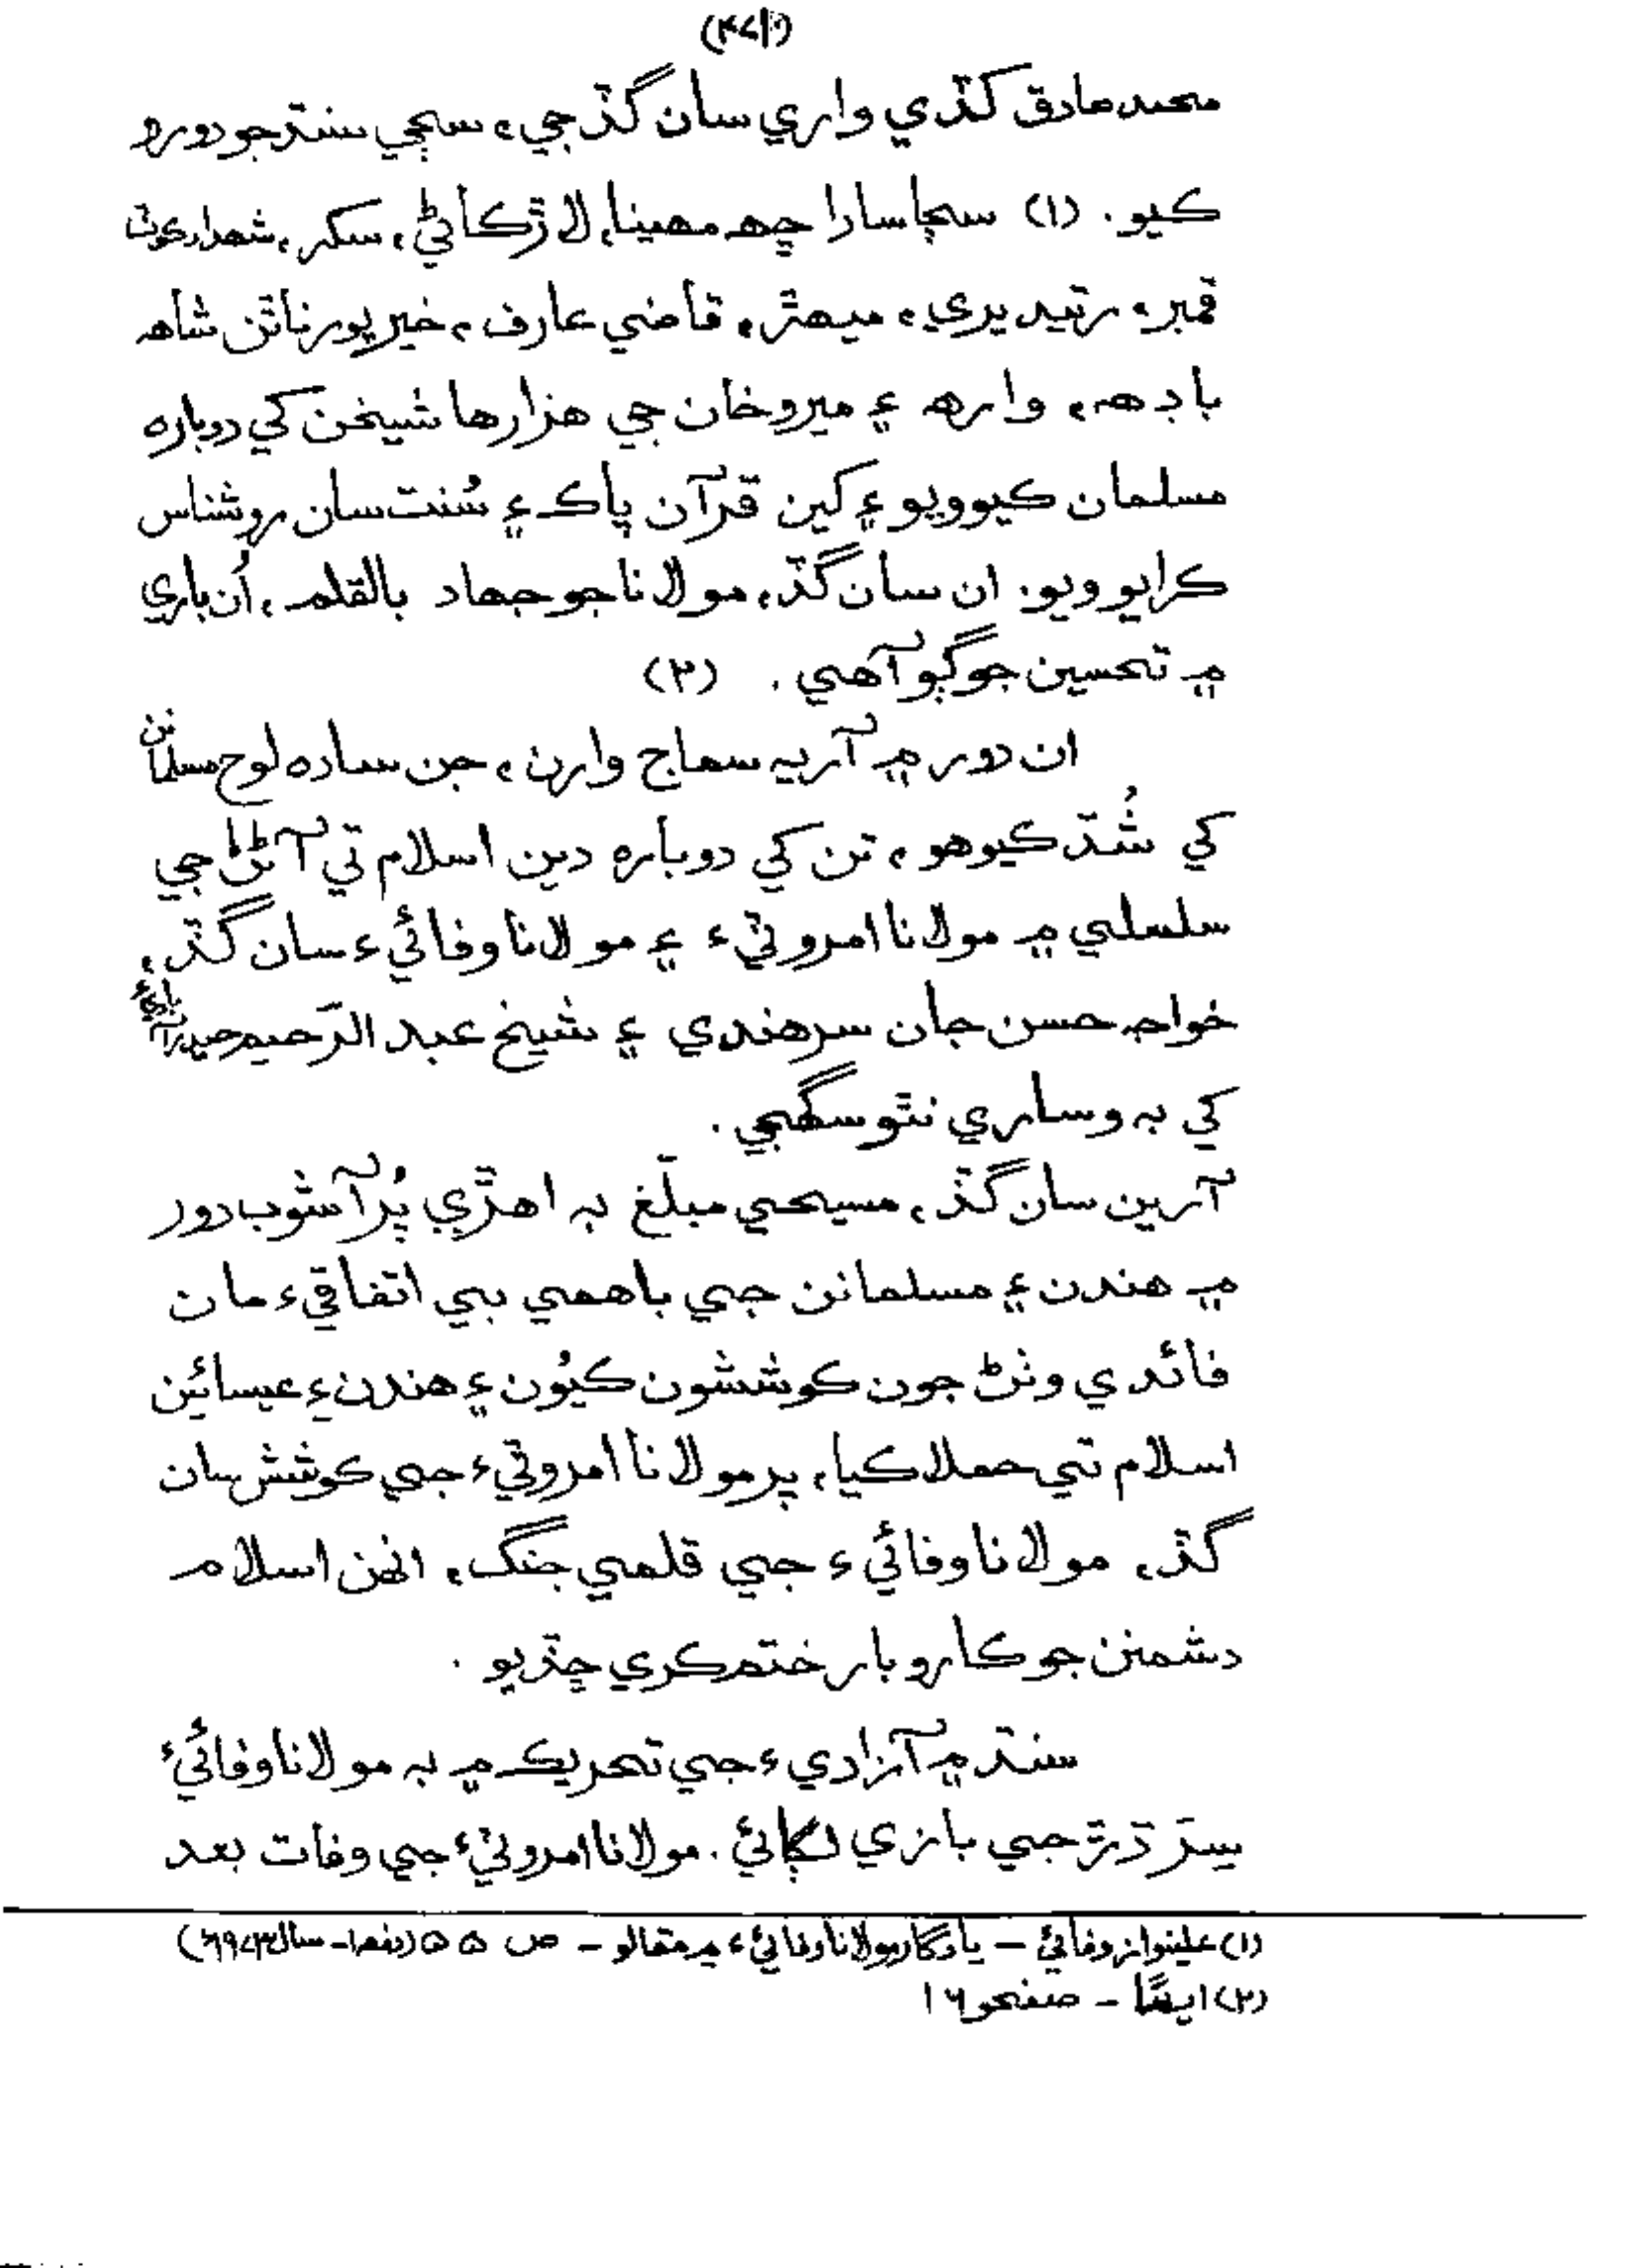 محمد صادق کڏي واري سان گڏجي، سڄي سنڌ جو دورو
ڪيو. (۱) سڄا سارا ڇهه مهينا، لاڙڪاڻي، سکر، شهدادڪوٽ
قمبر، رتيديري، ميهڙ، قاضي عارف، خيرپور ناٿن شاهه
باڊهه، وارهه ۽ ميروخان جي هزارها شيخن کي دوباره
مسلمان ڪيو ويو ۽ کين قرآن پاڪ ۽ سُنت سان روشناس
ڪرايو ويو. ان سان گڏ، مولانا جو جهاد بالقلم، اُن باري
۾ تحسين جوڳو آهي. (۲)
ان دور ۾ آريه سماج وارن، جن ساده لوح مسلمانن
کي شُڌ ڪيو هو، تن کي دوباره دين اسلام تي آڻڻ جي
سلسلي ۾ مولانا امروٽيءَ ۽ مولانا وفائيءَ سان گڏ،
خواجه حسن جان سرهندي ۽ شيخ عبد الرّحيم حيدرآباديءَ
کي به وساري نٿو سگهجي.
آرين سان گڏ، مسيحي مبلّغ به اهڙي پُر آشوب دور
۾ هندن ۽ مسلمانن جي باهمي بي اتفاقيءَ مان
فائدي وٺڻ جون ڪوششون ڪيُون ۽ هندن ۽ عيسائين
اسلام تي حملا ڪيا، پر مولانا امروٽيءَ جي ڪوشش سان
گڏ، مولانا وفائيءَ جي قلمي جنگ، انهن اسلام
دشمنن جو ڪاروبار ختم ڪري ڇڏيو.
سنڌ ۾ آزاديءَ جي تحريڪ ۾ به مولانا وفائيءَ
سِرَ ڌڙ جي بازي لڳائي. مولانا امروٽيءَ جي وفات بعد
(۱) علينواز وفائي – يادگار مولانا وفائيءَ ۾ مقالو – ص ۵۵ (دفعا – سال ۱۹۷۳ع)
(۲) ايضًا – صفحو ۱۶